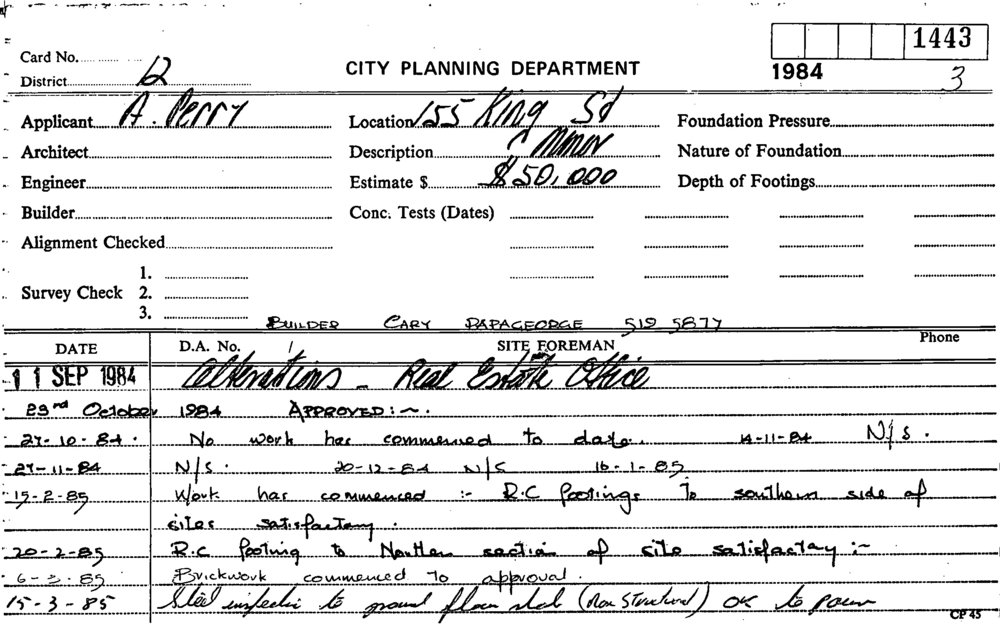 1443
Card No.
CITY PLANNING DEPARTMENT
1984 3
District 12
Applicant A. Perry Location 155 King St Foundation Pressure
Architect Description C Minor Nature of Foundation
Engineer Estimate $ $50,000 Depth of Footings
Builder Conc. Tests (Dates)
Alignment Checked
1.
Survey Check 2.
3.
BUILDER CARY PAPAGEORGE 519 5877
DATE D.A. No. SITE FOREMAN Phone
11 SEP 1984 Alterations - Real Estate Office
23rd October 1984 APPROVED :~.
27-10-84. No work has commenced to date. 14-11-84 N/S.
27-11-84 N/S. 20-12-84 N/S 16-1-85
15-2-85 Work has commenced :- R.C footings to southern side of
sites satisfactory.
20-2-85 R.C footing to Northern section of site satisfactory :~
6-3-85 Brickwork commenced to approval.
15-3-85 Steel inspected to ground floor slab (Non Structural) OK to pour
CP 45